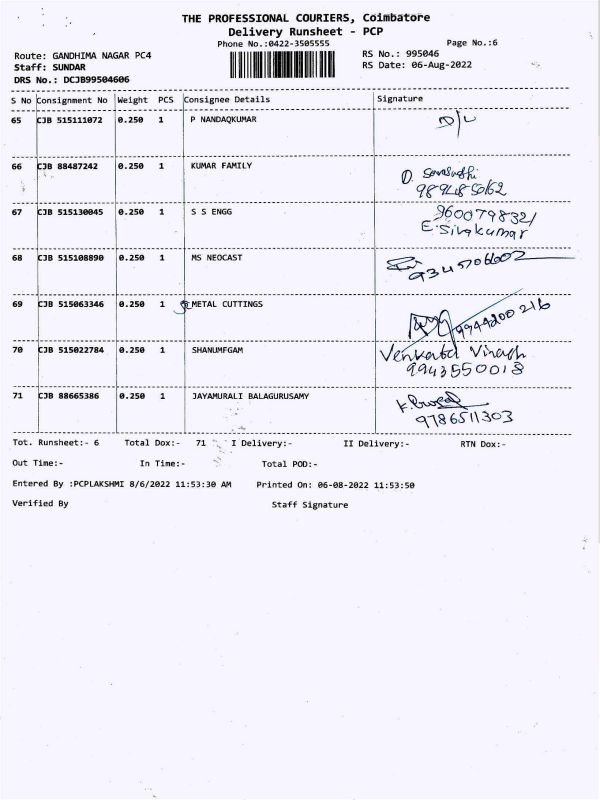 THE PROFESSIONAL COURIERS, Coimbatore
Delivery Runsheet - PCP
Phone No.:0422-3505555
Page No.:6
Route: GANDHIMA NAGAR PC4
RS No.: 995046
Staff: SUNDAR
RS Date: 06-Aug-2022
DRS No.: DCJB99504606
S No Consignment No Weight PCS Consignee Details Signature
65 CJB 515111072 0.250 1 P NANDAQKUMAR D/L
66 CJB 88487242 0.250 1 KUMAR FAMILY
67 CJB 515130045 0.250 1 S S ENGG 9600798321
E.Sivakumar
68 CJB 515108890 0.250 1 MS NEOCAST
9345706602
69 CJB 515063346 0.250 1 METAL CUTTINGS
9944200216
70 CJB 515022784 0.250 1 SHANUMFGAM Venkata
9943550018
71 CJB 88665386 0.250 1 JAYAMURALI BALAGURUSAMY
9786511303
Tot. Runsheet:- 6 Total Dox:- 71 I Delivery:- II Delivery:- RTN Dox:-
Out Time:- In Time:- Total POD:-
Entered By :PCPLAKSHMI 8/6/2022 11:53:30 AM Printed On: 06-08-2022 11:53:50
Verified By Staff Signature